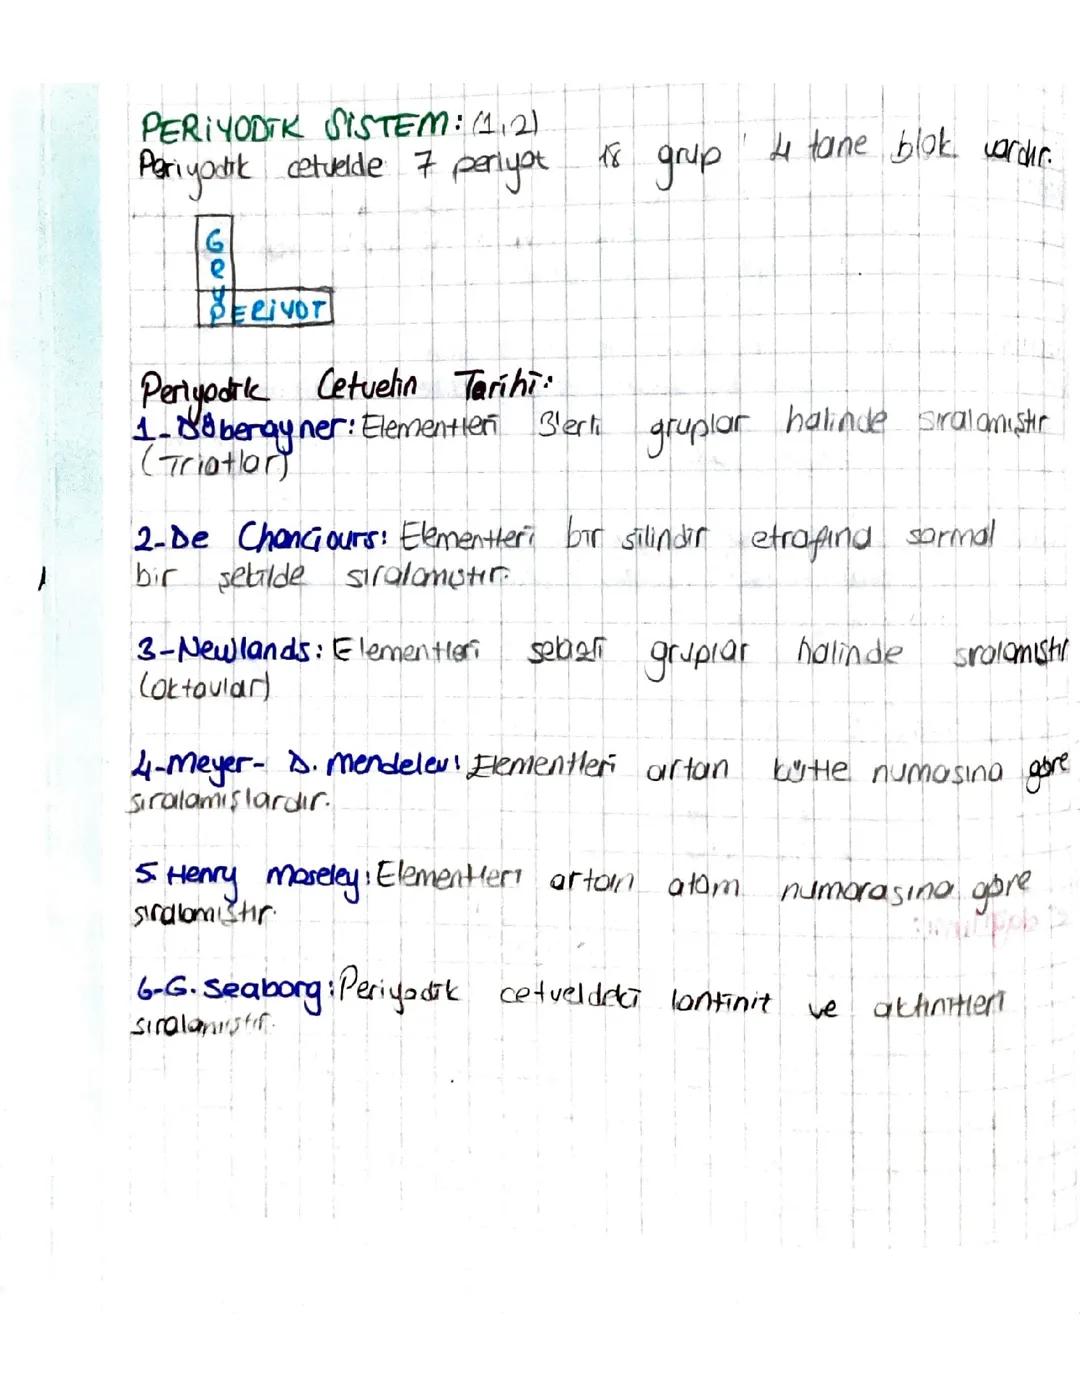 PERİYODİK SİSTEM: (1,2)
Periyodik cetvelde 7 periyot 18 grup 4 tane blok vardır.
GRUP
PERİYOT
Periyodik Cetvelin Tarihi:
1-Döberayner: Elementleri 3'erli gruplar halinde sıralamıştır
(Triatlar)
2-De Chanciours: Elementleri bir silindir etrafında sarmal
bir şekilde sıralamıştır.
3-Newlands: Elementleri sekizli gruplar halinde sıralamıştır
(oktavlar)
4-Meyer- D. mendelev: Elementleri artan kütle numasına göre
sıralamışlardır.
5. Henry Moseley: Elementleri artan atom numarasına göre
sıralamıştır.
6-G. Seaborg: Periyodik cetveldeki lantinit ve aktinitleri
sıralamıştır.